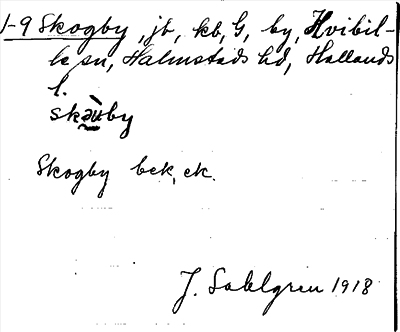 1-9 Skogby, jb, kb, G, by, Hvibil-
le sn, Halmstads hd, Hallands
l.
skàuby
Skogby bek, ek.
J. Sahlgren 1918